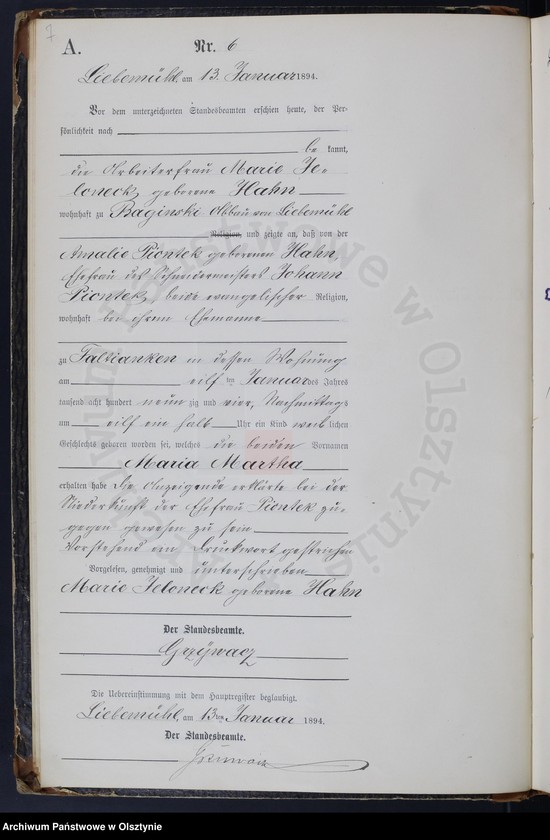 7
A.
Nr. 6
Liebemühl, am 13. Januar 1894.
Vor dem unterzeichneten Standesbeamten erschien heute, der Per-
sönlichkeit nach
be kannt,
die Arbeiterfrau Marie Je-
loneck, geborene Hahn
wohnhaft zu Baginski Abbau von Liebemühl
Religion, und zeigte an, daß von der
Amalie Piontek geborenen Hahn,
Ehefrau des Schneidermeisters Johann
Piontek, beide evangelischer Religion,
wohnhaft bei ihrem Ehemanne
zu Taftianken in dessen Wohnung
am eilf ten Januar des Jahres
tausend acht hundert neun zig und vier, Nachmittags
um eilf ein halb Uhr ein Kind weib lichen
Geschlechts geboren worden sei, welches die beiden Vornamen
Maria Martha
erhalten habe Die Anzeigende erklärte bei der
Niederkunft der Ehefrau Piontek zu-
gegen gewesen zu sein
Vorstehend ein Druckwort gestrichen
Vorgelesen, genehmigt und unterschrieben
Marie Jeloneck geborene Hahn
Der Standesbeamte.
Grzÿwacz
Die Uebereinstimmung mit dem Hauptregister beglaubigt.
Liebemühl, am 13ten Januar 1894.
Der Standesbeamte.
Archiwum Państwowe w Olsztynie
Archiwum Państwowe w Olsztynie